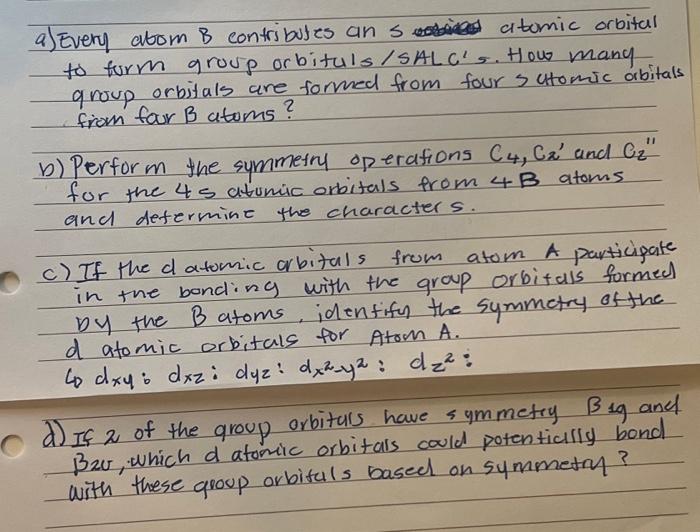 a) Every atom B contributes an s atomic orbital
to form group orbitals / SALC's. How many
group orbitals are formed from four s atomic orbitals
from four B atoms?
b) Perform the symmetry operations C4, C2' and C2"
for the 4 s atomic orbitals from 4 B atoms
and determine the characters.
c) If the d atomic orbitals from atom A participate
in the bonding with the group orbitals formed
by the B atoms, identify the symmetry of the
d atomic orbitals for Atom A.
↳ dxy: dxz: dyz: dx²-y²: dz²:
d) If 2 of the group orbitals have symmetry B1g and
B2u, which d atomic orbitals could potentially bond
with these group orbitals based on symmetry?